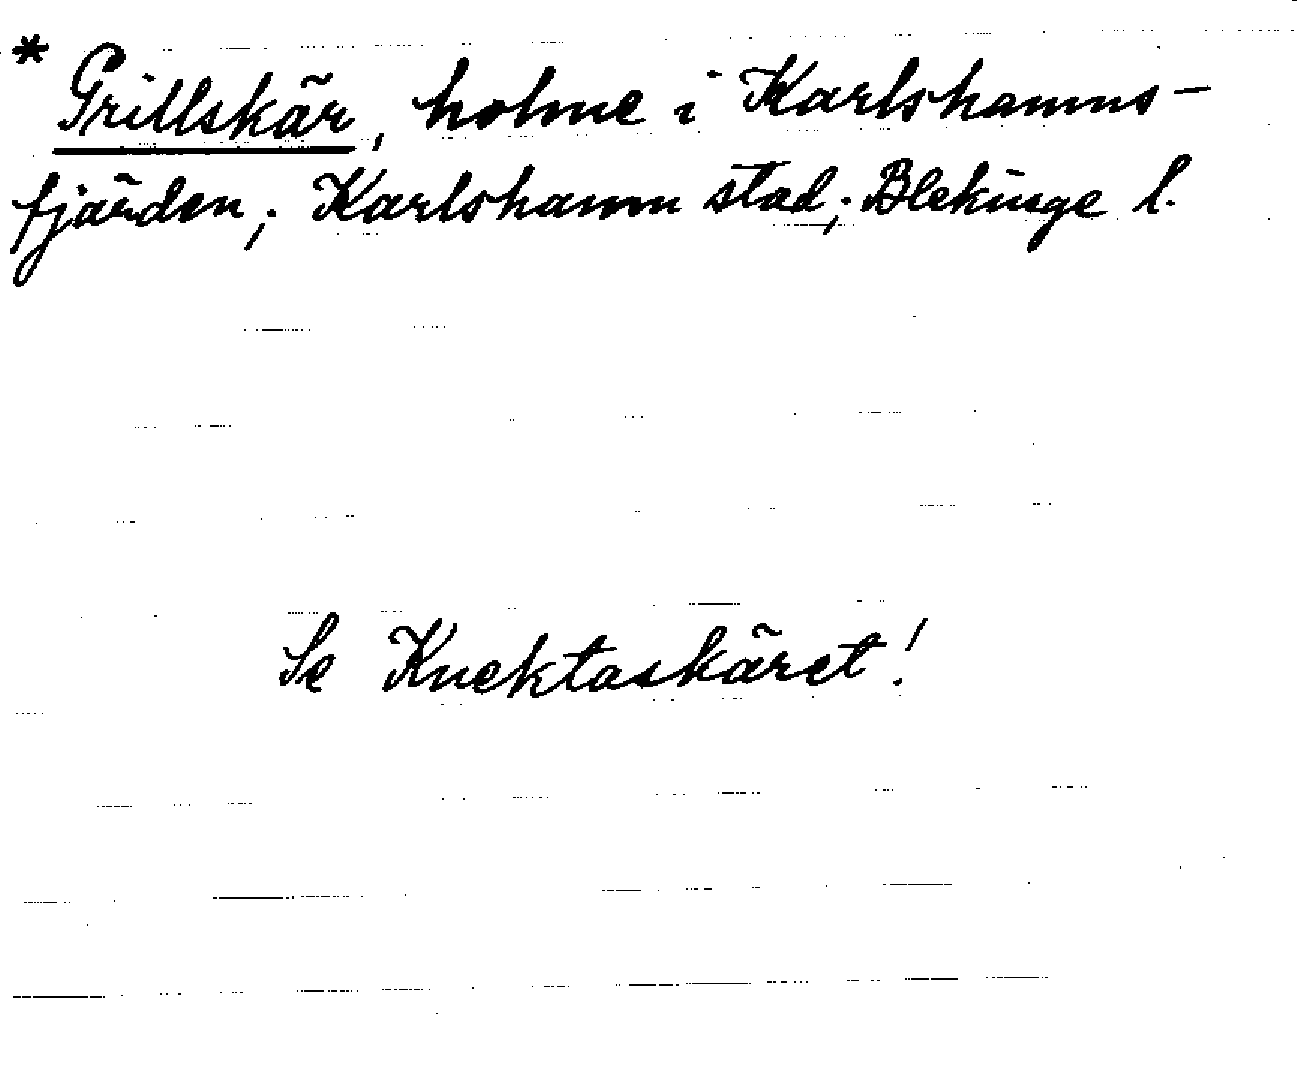 * Grillskär, holme i Karlshamns-
fjärden; Karlshamn stad; Blekinge l.
Se Knektaskäret!